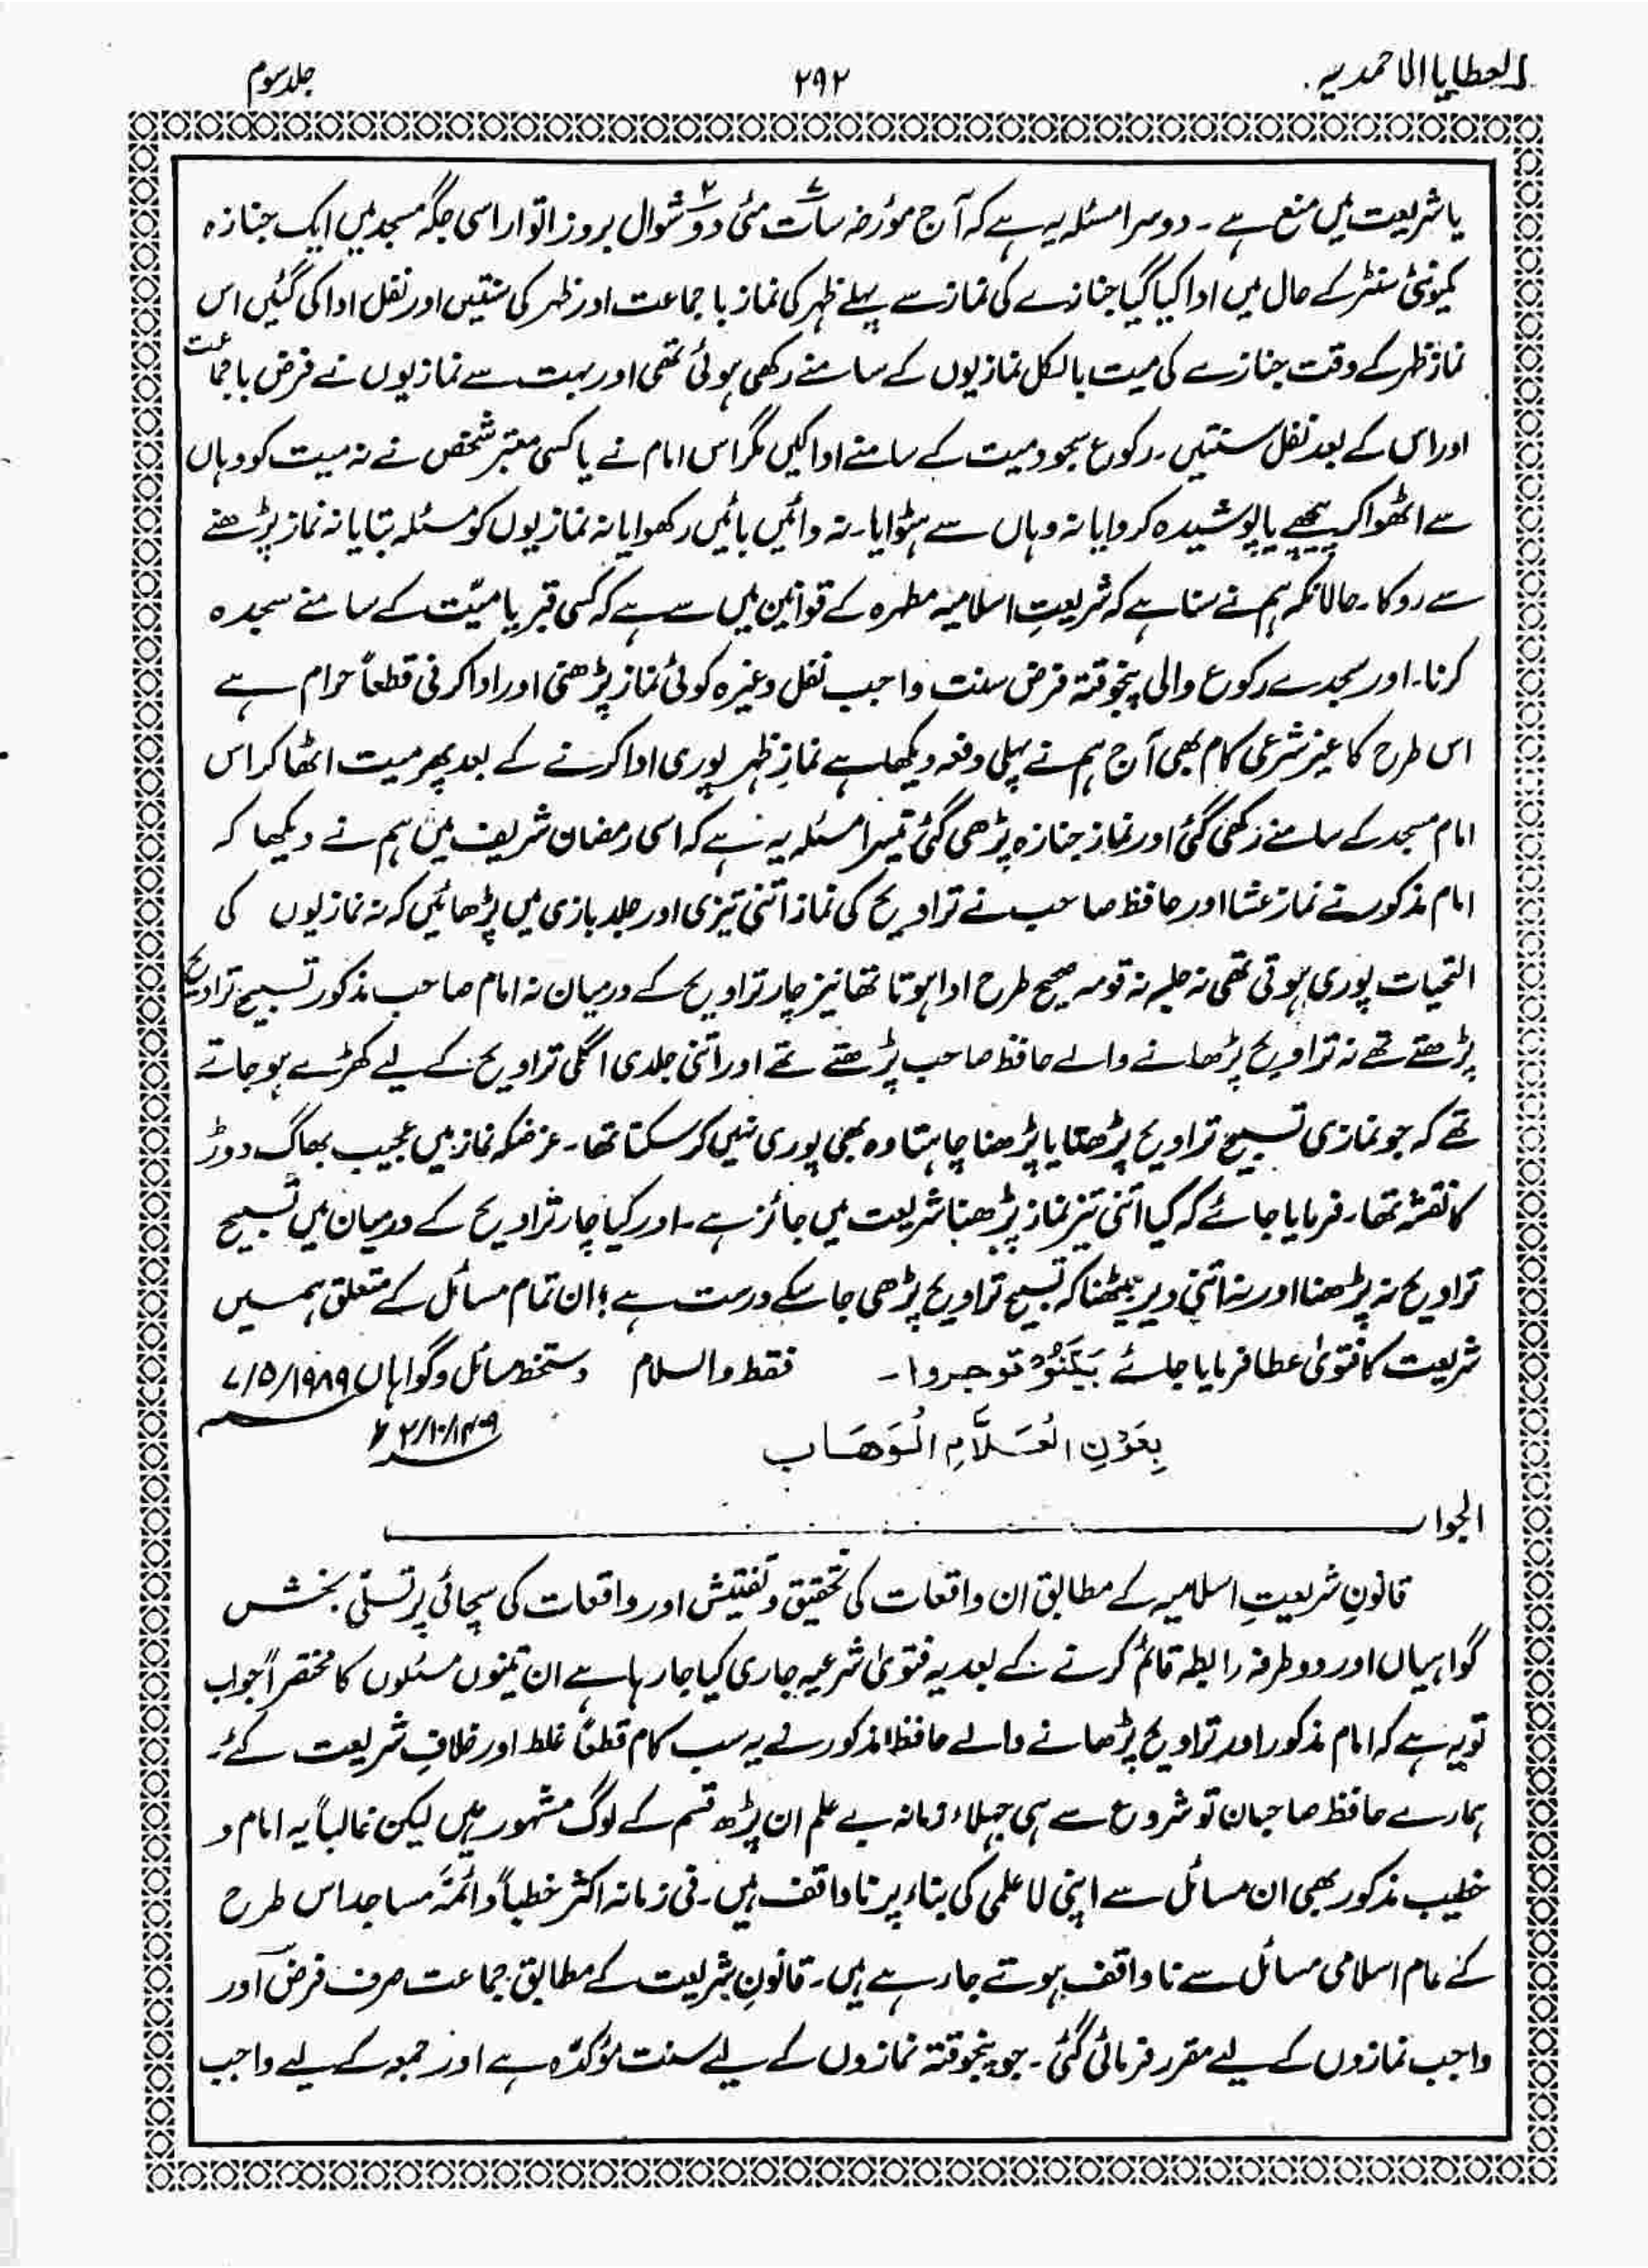 العطایا الاحمدیہ
۲۹۲
جلد سوم
یا شریعت میں منع ہے۔ دوسرا مسئلہ یہ ہے کہ آج مؤرخہ سات ۷ مئی دو ۲ شوال بروز اتوار اسی جگہ مسجد میں ایک جنازہ
کمیونٹی سنٹر کے حال میں ادا کیا گیا جنازے کی نماز سے پہلے ظہر کی نماز با جماعت اور ظہر کی سنتیں اور نفل ادا کی گئیں اس
نماز ظہر کے وقت جنازے کی میت بالکل نمازیوں کے سامنے رکھی ہوئی تھی اور بہت سے نمازیوں نے فرض باجماعت
اور اس کے بعد نفل سنتیں۔ رکوع سجود میت کے سامنے ادا کیں مگر اس امام نے یا کسی معتبر شخص نے نہ میت کو وہاں
سے اٹھوا کر پیچھے یا پوشیدہ کروایا نہ وہاں سے ہٹوایا۔ نہ دائیں بائیں رکھوایا نہ نمازیوں کو مسئلہ بتایا نہ نماز پڑھنے
سے روکا۔ حالانکہ ہم نے سنا ہے کہ شریعتِ اسلامیہ مطہرہ کے قوانین میں سے ہے کہ کسی قبر یا میّت کے سامنے سجدہ
کرنا۔ اور سجدے رکوع والی پنجوقتہ فرض سنت واجب نفل وغیرہ کوئی نماز پڑھنی اور ادا کرنی قطعاً حرام ہے
اس طرح کا غیر شرعی کام بھی آج ہم نے پہلی دفعہ دیکھا ہے نمازِ ظہر پوری ادا کرنے کے بعد پھر میت اٹھا کر اس
امام مسجد کے سامنے رکھی گئی اور نماز جنازہ پڑھی گئی تیسرا مسئلہ یہ ہے کہ اسی رمضان شریف میں ہم نے دیکھا کہ
امام مذکور نے نماز عشا اور حافظ صاحب نے تراویح کی نماز اتنی تیزی اور جلد بازی میں پڑھائیں کہ نہ نمازیوں کی
التحیات پوری ہوتی تھی نہ جلسہ نہ قومہ صحیح طرح ادا ہوتا تھا نیز چار تراویح کے درمیان نہ امام صاحب مذکور تسبیح تراویح
پڑھتے تھے نہ تراویح پڑھانے والے حافظ صاحب پڑھتے تھے اور اتنی جلدی اگلی تراویح کے لیے کھڑے ہو جاتے
تھے کہ جو نمازی تسبیح تراویح پڑھتا یا پڑھنا چاہتا وہ بھی پوری نہیں کر سکتا تھا۔ غرضکہ نماز میں عجیب بھاگ دوڑ
کا نقشہ تھا۔ فرمایا جائے کہ کیا اتنی تیز نماز پڑھنا شریعت میں جائز ہے۔ اور کیا چار تراویح کے درمیان میں تسبیح
تراویح نہ پڑھنا اور نہ اتنی دیر بیٹھنا کہ تسبیح تراویح پڑھی جا سکے درست ہے؛ ان تمام مسائل کے متعلق ہمیں
شریعت کا فتویٰ عطا فرمایا جائے بَیِّنُوْ توجروا۔ فقط والسلام دستخط سائل و گواہاں ۷/۵/۱۹۸۹
۲/۱۰/۱۴۰۹
بِعَوْنِ الْعَلَّامِ الْوَهَاب
الجواب
قانونِ شریعتِ اسلامیہ کے مطابق ان واقعات کی تحقیق و تفتیش اور واقعات کی سچائی پر تسلّی بخش
گواہیاں اور دو طرفہ رابطہ قائم کرنے کے بعد یہ فتویٰ شرعیہ جاری کیا جا رہا ہے ان تینوں مسئلوں کا مختصراً جواب
تو یہ ہے کہ امام مذکور اور تراویح پڑھانے والے حافظ مذکور نے یہ سب کام قطعاً غلط اور خلافِ شریعت کئے۔
ہمارے حافظ صاحبان تو شروع سے ہی جہلاءِ زمانہ بے علم ان پڑھ قسم کے لوگ مشہور ہیں لیکن غالباً یہ امام و
خطیب مذکور بھی ان مسائل سے اپنی لا علمی کی بناء پر ناواقف ہیں۔ فی زمانہ اکثر خطباً وائمہ مساجد اس طرح
کے عام اسلامی مسائل سے ناواقف ہوتے جا رہے ہیں۔ قانونِ شریعت کے مطابق جماعت صرف فرض اور
واجب نمازوں کے لیے مقرر فرمائی گئی۔ جو پنجوقتہ نمازوں کے لیے سنت مؤکدہ ہے اور جمعہ کے لیے واجب